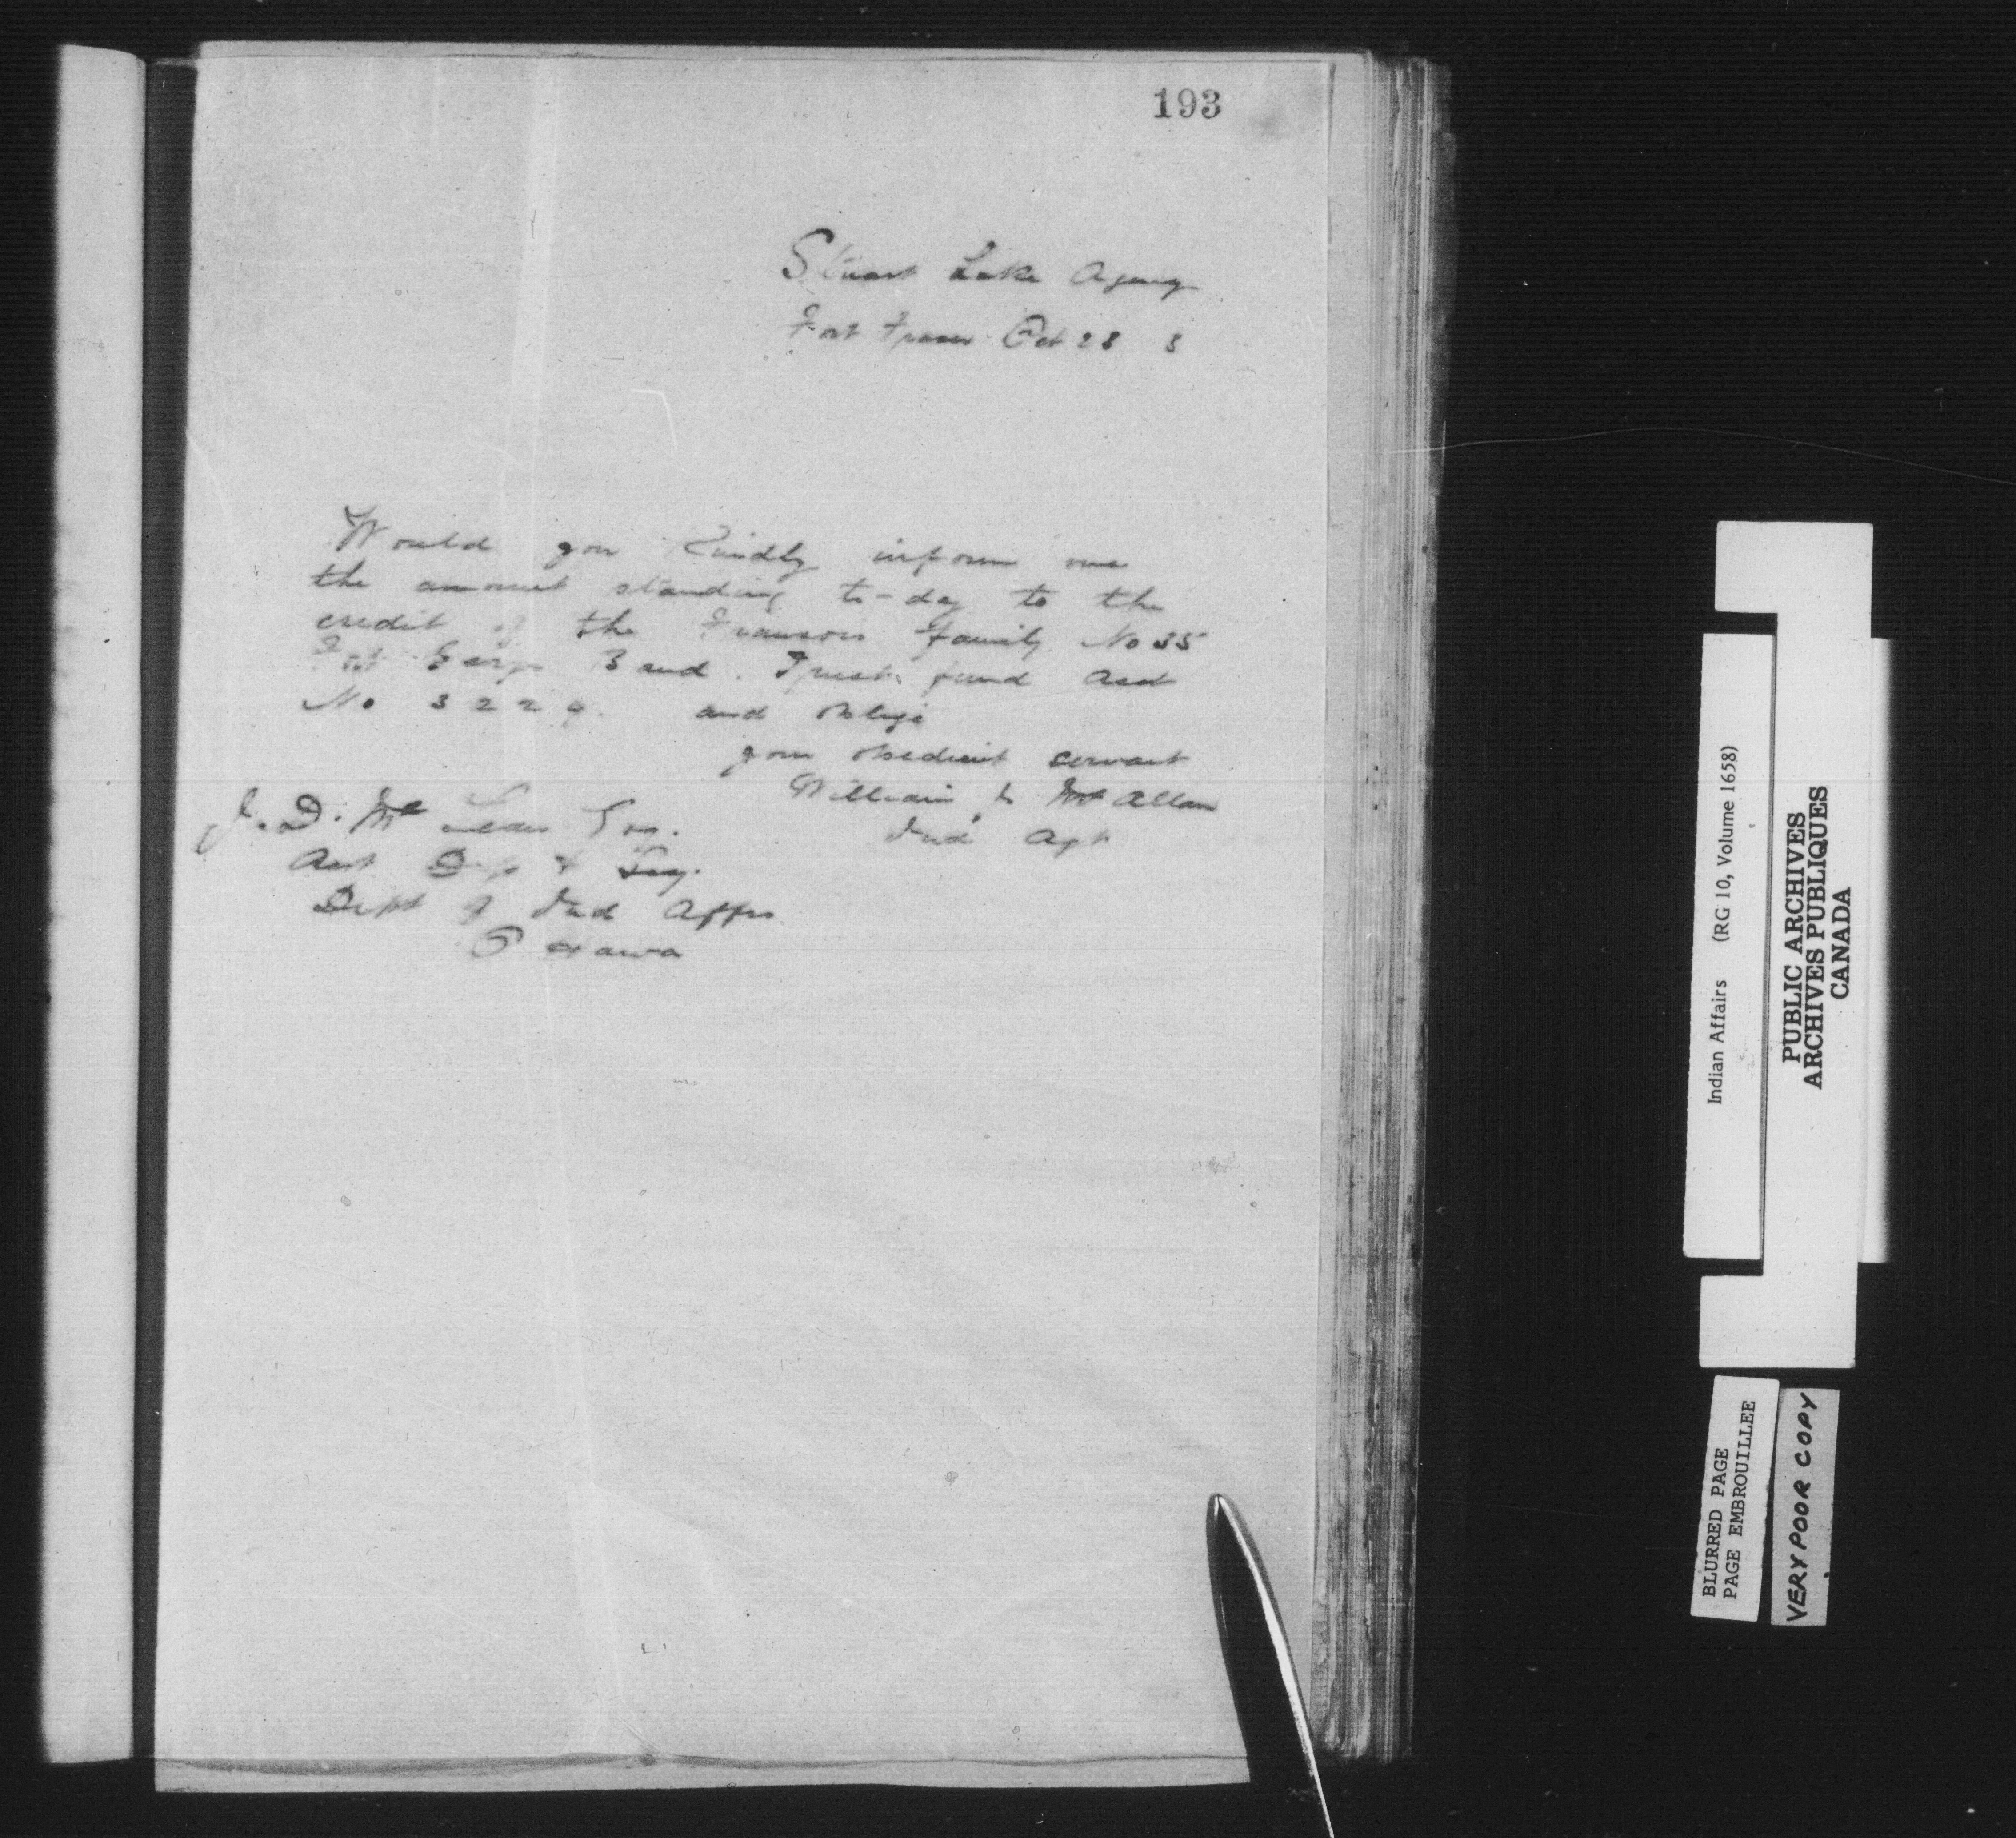 193
Stuart Lake Agency
Fort Fraser Oct 28 3
Would you Kindly inform me
the amount standing to-day to the
credit of the Francois family No 35
Fort George Band. Trust fund Acct
No 3229. and oblige
your obedient servant
William J. McAllan
Ind Agt
J. D. McLean Esq.
Asst Dep & Secy.
Dept of Ind Affrs
Ottawa
Indian Affairs (RG 10, Volume 1658)
PUBLIC ARCHIVES
ARCHIVES PUBLIQUES
CANADA
BLURRED PAGE
PAGE EMBROUILLEE
VERY POOR COPY